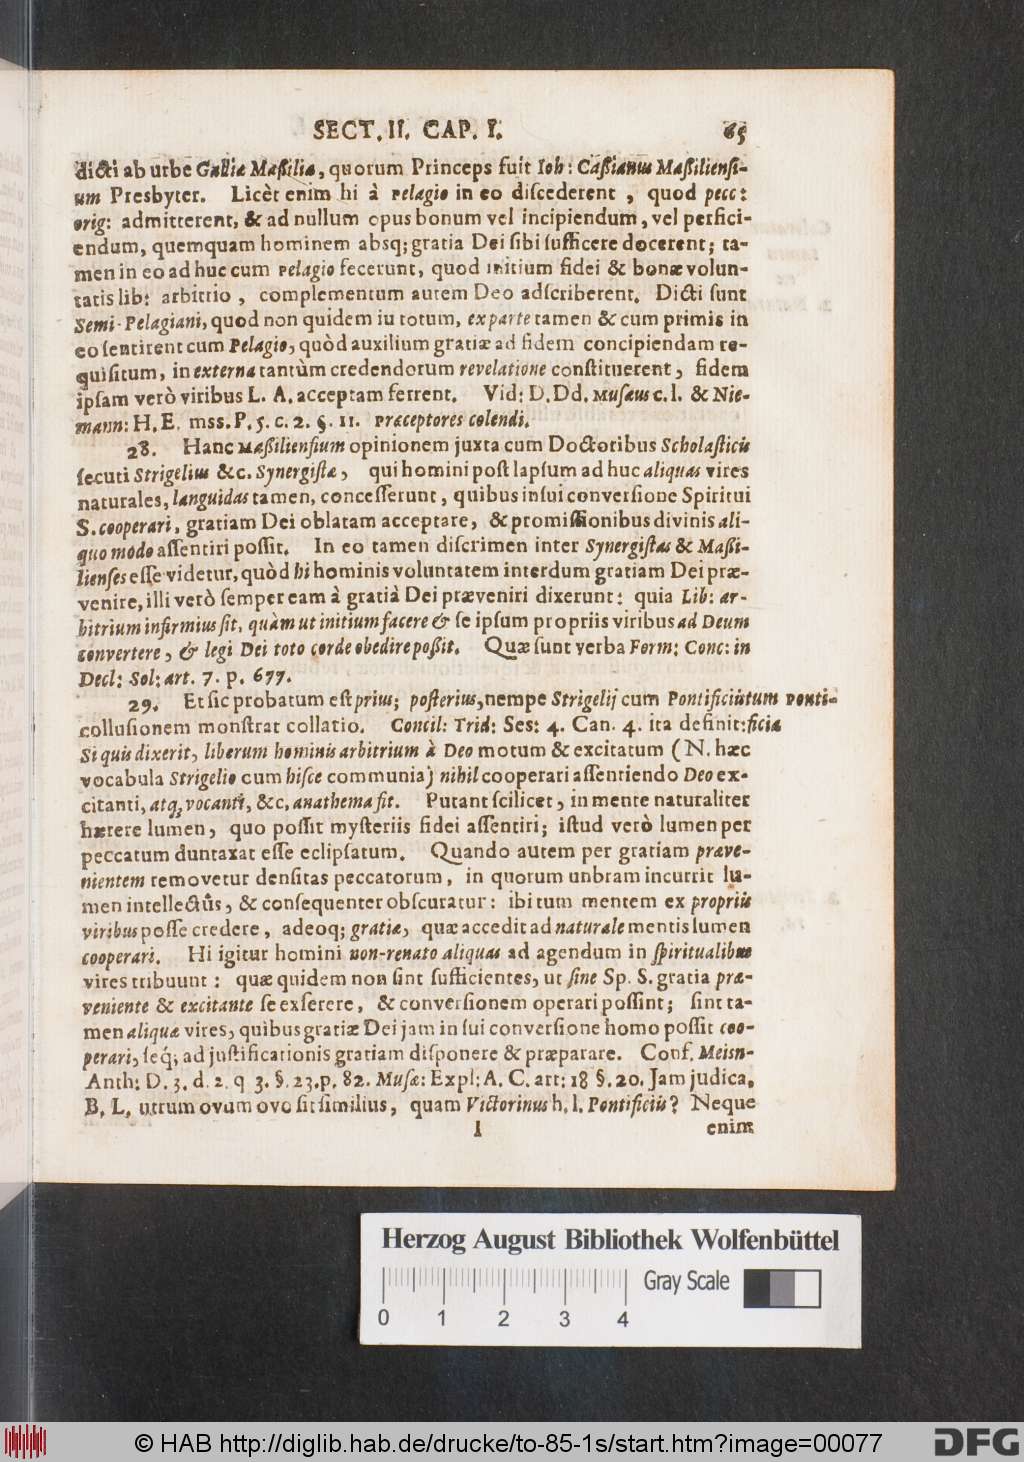 SECT. II. CAP. I. 65
dicti ab urbe Galliæ Maßiliæ, quorum Princeps fuit Ioh: Caßianus Maßiliensi-
um Presbyter. Licèt enim hi à Pelagio in eo discederent, quod pecc:
orig: admitterent, & ad nullum opus bonum vel incipiendum, vel perfici-
endum, quemquam hominem absq; gratia Dei sibi sufficere docerent; ta-
men in eo ad huc cum Pelagio fecerunt, quod initium fidei & bonæ volun-
tatis lib: arbitrio, complementum autem Deo adscriberent. Dicti sunt
Semi-Pelagiani, quod non quidem iu totum, ex parte tamen & cum primis in
eo sentirent cum Pelagio, quòd auxilium gratiæ ad fidem concipiendam re-
quisitum, in externa tantùm credendorum revelatione constituerent, fidem
ipsam verò viribus L. A. acceptam ferrent. Vid: D. Dd. Musæus c. l. & Nie-
mann: H. E. mss. P. 5. c. 2. §. 11. Præceptores colendi.
28. Hanc Maßiliensium opinionem juxta cum Doctoribus Scholasticis
secuti Strigelius &c. Synergistæ, qui homini post lapsum ad huc aliquas vires
naturales, languidas tamen, concesserunt, quibus in sui conversione Spiritui
S. cooperari, gratiam Dei oblatam acceptare, & promissionibus divinis ali-
quo modo assentiri possit. In eo tamen discrimen inter Synergistas & Maßi-
lienses esse videtur, quòd hi hominis voluntatem interdum gratiam Dei præ-
venire, illi verò semper eam à gratiâ Dei præveniri dixerunt: quia Lib: ar-
bitrium infirmius sit, quàm ut initium facere & se ipsum propriis viribus ad Deum
convertere, & legi Dei toto corde obedire poßit. Quæ sunt verba Form: Conc: in
Decl: Sol: art. 7. p. 677.
29. Et sic probatum est prius; posterius, nempe Strigelij cum Pontificiis tum ponti-
collusionem monstrat collatio. Concil: Trid: Ses: 4. Can. 4. ita definit: ficia
Si quis dixerit, liberum hominis arbitrium à Deo motum & excitatum (N. hæc
vocabula Strigelio cum hisce communia) nihil cooperari assentiendo Deo ex-
citanti, atq; vocanti, &c. anathema sit. Putant scilicet, in mente naturaliter
hærere lumen, quo possit mysteriis fidei assentiri; istud verò lumen per
peccatum duntaxat esse eclipsatum. Quando autem per gratiam præve-
nientem removetur densitas peccatorum, in quorum unbram incurrit lu-
men intellectûs, & consequenter obscuratur: ibi tum mentem ex propriis
viribus posse credere, adeoq; gratiæ, quæ accedit ad naturale mentis lumen
cooperari. Hi igitur homini non-renato aliquas ad agendum in spiritualibus
vires tribuunt: quæ quidem non sint sufficientes, ut sine Sp. S. gratia præ-
veniente & excitante se exserere, & conversionem operari possint; sint ta-
men aliquæ vires, quibus gratiæ Dei jam in sui conversione homo possit coo-
perari, seq; ad justificationis gratiam disponere & præparare. Conf. Meisn-
Anth: D. 3. d. 2. q 3. §. 23. p. 82. Musæ: Expl: A. C. art: 18 §. 20. Jam judica,
B. L. utrum ovum ovo sit similius, quam Victorinus h. l. Pontificiis? Neque
l enim
Herzog August Bibliothek Wolfenbüttel
Gray Scale
0 1 2 3 4
© HAB http://diglib.hab.de/drucke/to-85-1s/start.htm?image=00077
DFG